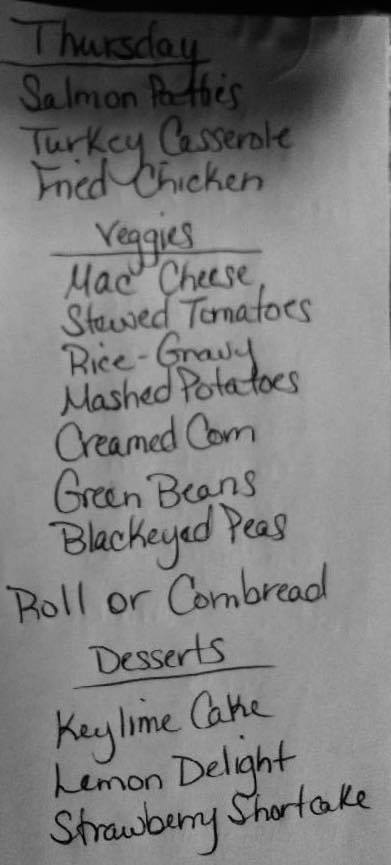 Thursday
Salmon Patties
Turkey Casserole
Fried Chicken
Veggies
Mac Cheese
Stewed Tomatoes
Rice-Gravy
Mashed Potatoes
Creamed Corn
Green Beans
Blackeyed Peas
Roll or Cornbread
Desserts
Keylime Cake
Lemon Delight
Strawberry Shortcake